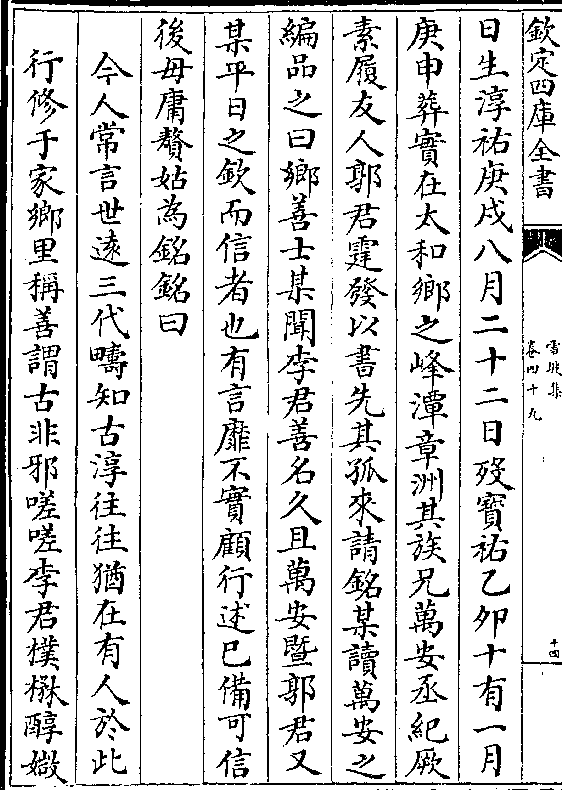 欽定四庫全書
雪坡集
卷四十九
十四
日生淳祐庚戌八月二十二日歿寶祐乙夘十有一月
庚申葬實在太和鄉之峰潭章洲其族兄萬安丞紀厥
素履友人郭君霆發以書先其孤來請銘某讀萬安之
編品之曰鄉善士某聞李君善名久且萬安暨郭君又
某平日之欽而信者也有言靡不實顧行述已備可信
後毋庸贅姑為銘銘曰
今人常言世逺三代疇知古淳往往猶在有人於此
行修于家鄉里稱善謂古非邪嗟嗟李君樸楙醇媺